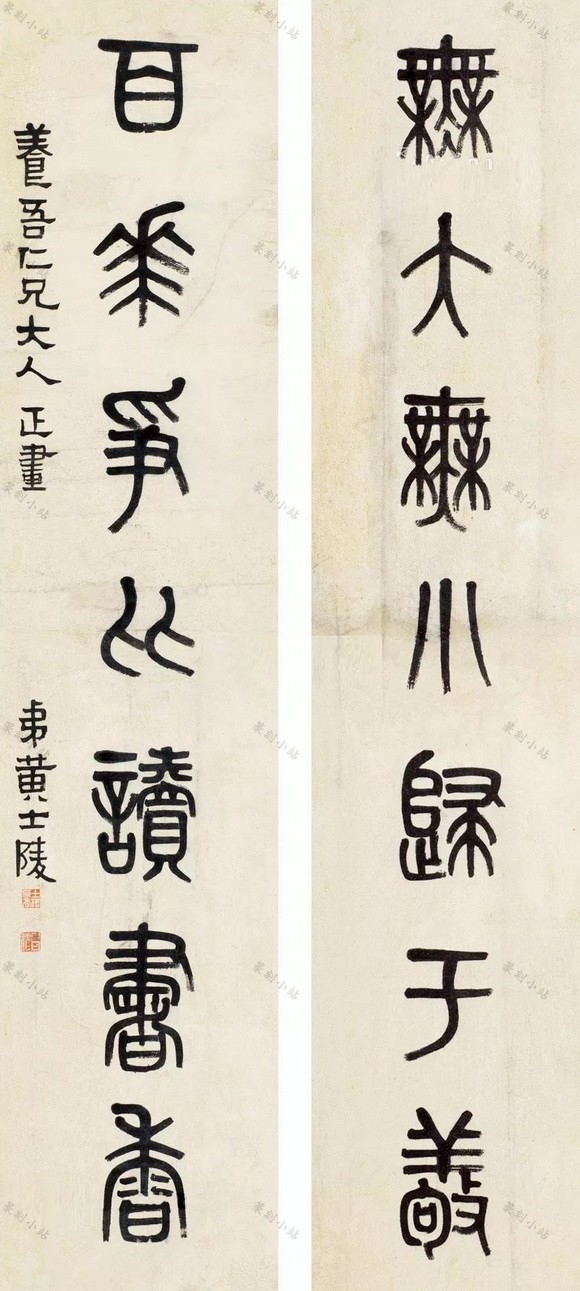 無大無小歸于敬
百華爭比讀書香
養吾仁兄大人 正畫
弟黃士陵
篆刻小站